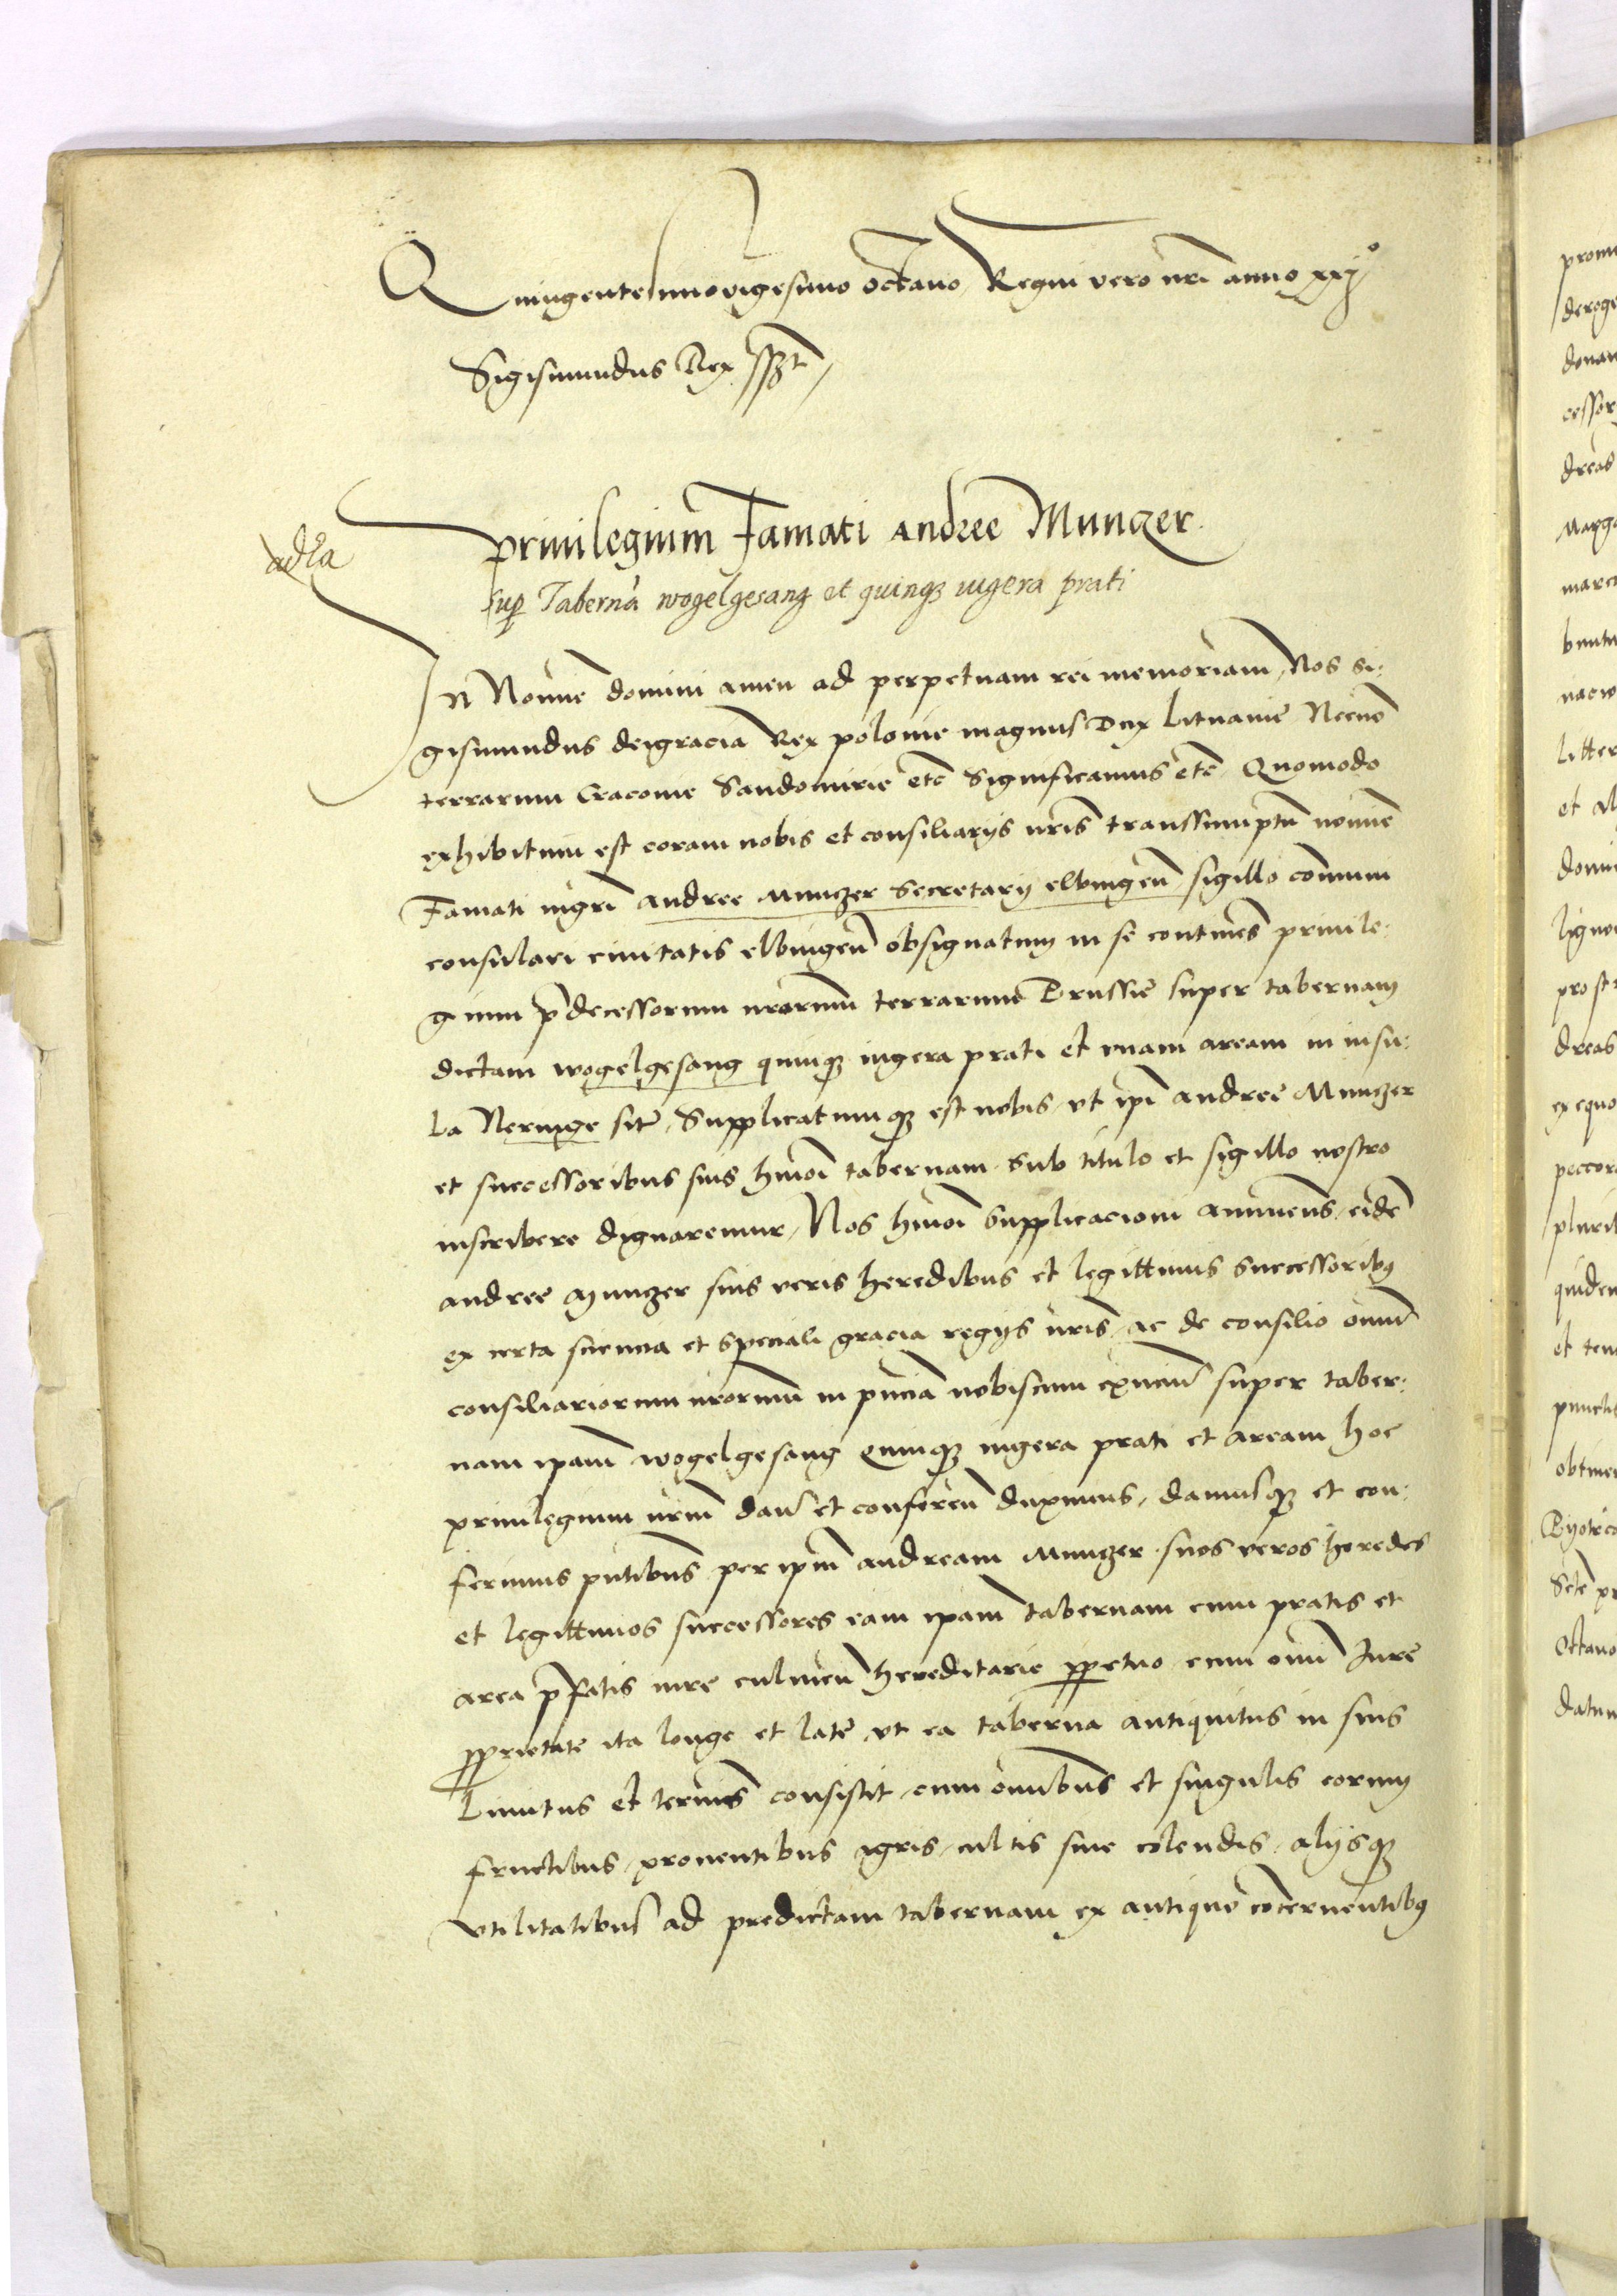 Quingentesimo vigesimo octavo Regni vero nrī anno xxijº
Sigismundus Rex sszt
privilegium Famati andree Munczer
adīa
sup Tabernā wogelgesang et quinq3 iugera prati
In Nomīe domini amen ad perpetuam rei memoriam, Nos si:
gismundus dei gracia Rex polonie magnus Dux Lituanie Necnō
terrarum Cracovie Sandomirie etc̄ Significamus etc̄, Quomodo
exhibitum est coram nobis et consiliarijs nrīs transsumptū nomīe
Famati mgrī andree Munczer Secretarij elbingeñ sigillo comuni
consulari civitatis elbingeñ obsignatum in se continēs privile:
gium p̄decessorum nrōrum terrarum Prussie super tabernam
dictam wogelgesang quinq3 iugera prati et unam aream in insu:
la Neringe sitē, Supplicatumq3 est nobis, ut ip̄i andree Munczer
et successoribus suis hmōi tabernam sub titulo et sigillo nostro
inscribere dignaremur, Nos hmōi supplicacioni annuentēs, eidē
andree Munczer suis veris heredibus et legittimis successorib9
ex certa sciencia et speciali gracia regijs nrīs, ac de consilio omniū
consiliariorum nrōrum in pñcia nobiscum exñciū super taber:
nam ipam wogelgesang Quinq3 iugera prati et aream hoc
privilegium nrūm dañ et confereñ duximus, damusq3 et con:
ferimus pñtibus per ipm̄ andream Munczer suos veros heredes
et legittimos successores eam ipam tabernam cum pratis et
area p̄fatis iure culmeñ hereditarie pp̄etuo cum omī Iure
pp̄rietate ita longe et late ut ea taberna antiquitus in suis
Limitus et termīs consistit, cum omībus et singulis eorum
fructibus, proventibus agris, cultis sive colendis, alijsq3
utilitatibus ad predictam tabernam ex antiquo cōcernentib9
derog
donan
cessor
dreas
marc
Litter
et al
domi
ligno
dreas
ex equo
peccor
plurib
quidem
et ten
obtine
octavo
datum